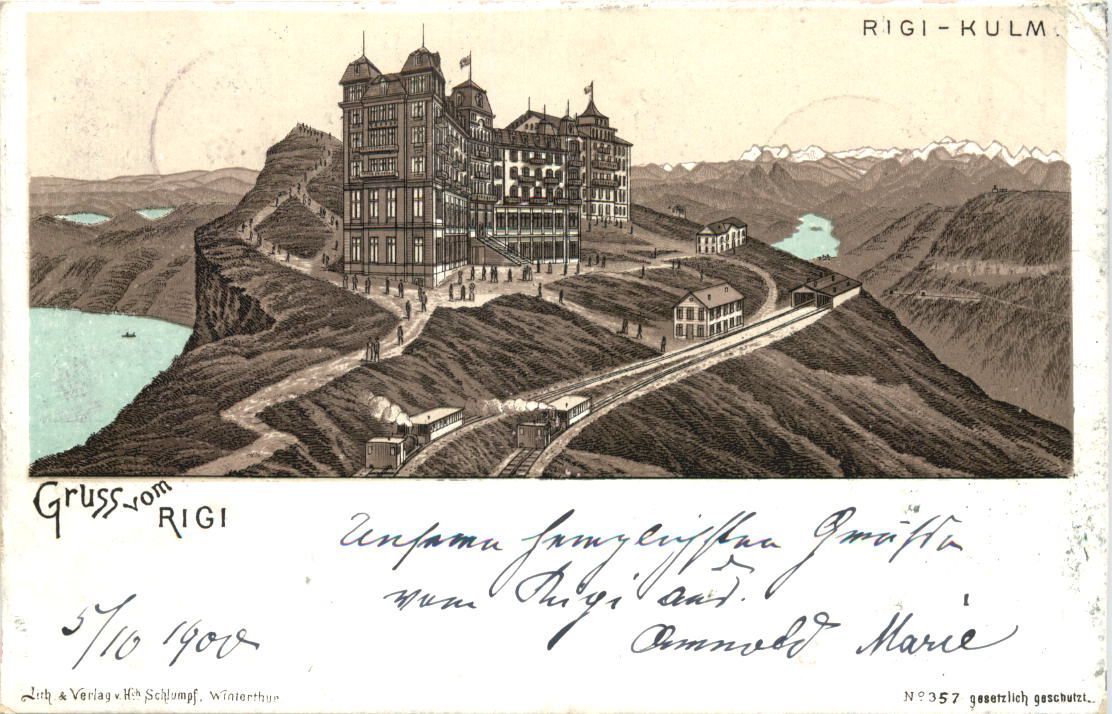 RIGI-KULM.
Gruss vom
RIGI
Unsern herzlichsten Grüsse
vom Rigi aus.
5/10 1900
Marie
Lith. & Verlag v. Hch Schlumpf, Winterthur
No 357 gesetzlich geschützt.